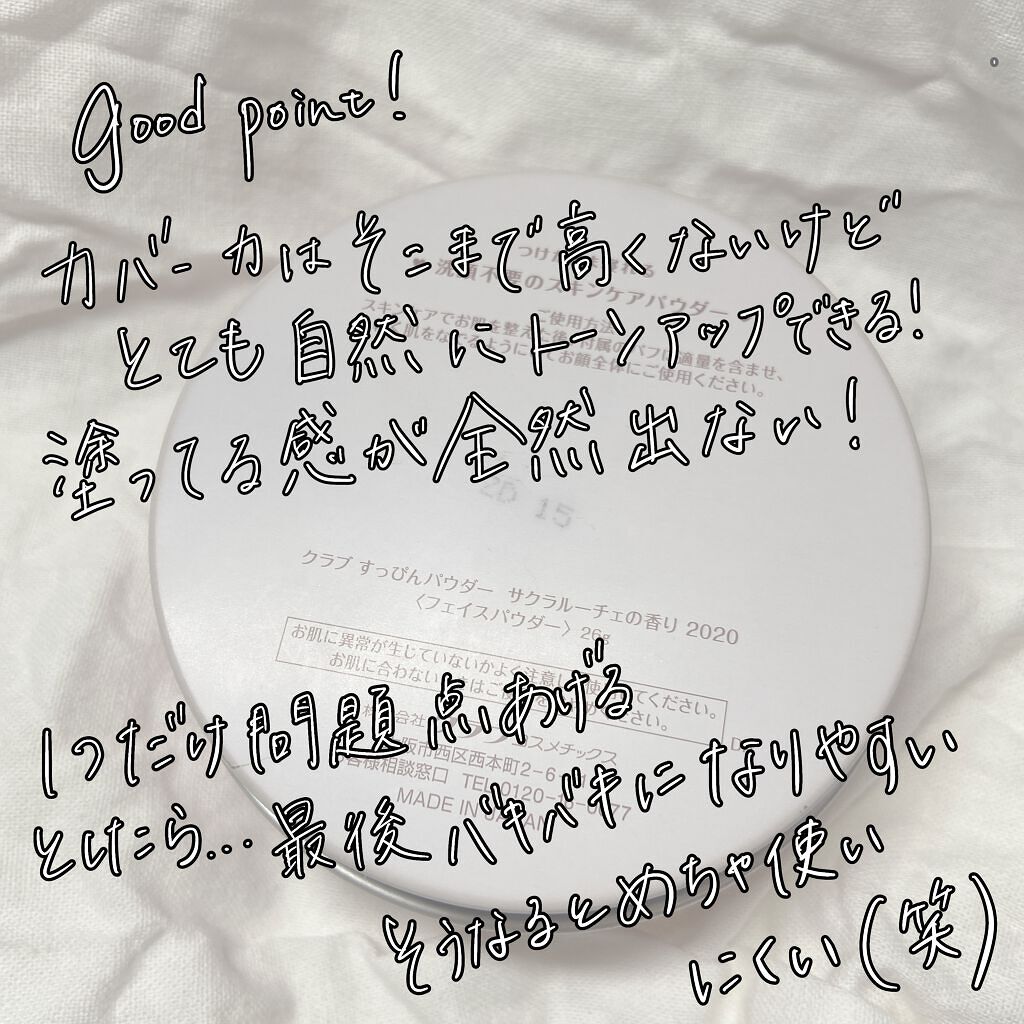 good point!
カバー力はそこまで高くないけど
とても自然にトーンアップできる!
塗ってる感が全然出ない!
洗顔不要のスキンケアパウダー
ご使用方法
スキンケアでお肌を整えた後、付属のパフに適量を含ませ、
肌をなでるようにしてお顔全体にご使用ください。
15
クラブ すっぴんパウダー サクラルーチェの香り 2020
〈フェイスパウダー〉 26g
お肌に異常が生じていないかよく注意して使用してください。
お肌に合わない
1つだけ問題点あげる
とけたら...最後バキバキになりやすい
そうなるとめちゃ使い
にくい(笑)
コスメチックス
阪市西区西本町2-6
客様相談窓口 TEL 0120-16-
MADE IN JAPAN